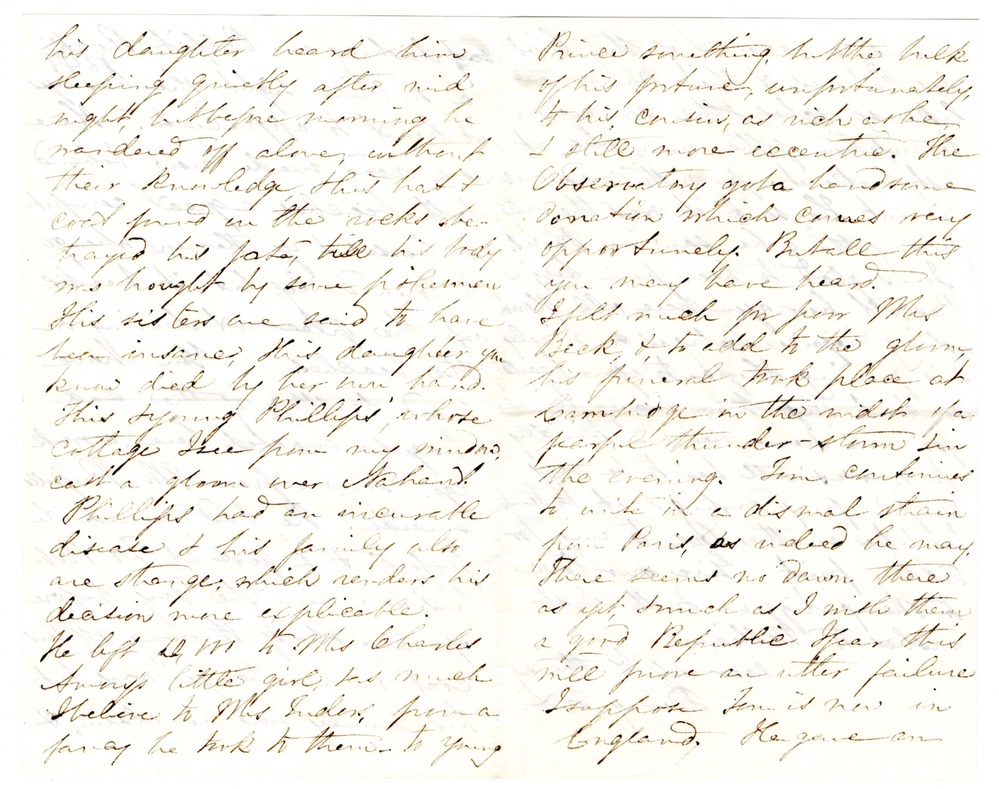 his daughter heard him
sleeping quietly after mid
night, but before morning he
wandered off alone, without
their knowledge, His hat &
coat found in the rocks be-
trayed his fate, till his body
was brought by some fishermen
His sisters are said to have
been insane, His daughter you
know died by her own hand.
This & young Phillips', whose
cottage I see from my window,
cast a gloom over Nahant.
Phillips had an incurable
disease & his family also
are strange, which renders his
decision more explicable.
He left to Mrs Charles
Amorys little girl, & as much
I believe to Mrs Tudor, from a
fancy he took to them - to young
Prince something, but the bulk
of his fortune, unfortunately,
to his cousin, as rich as he,
& still more eccentric. The
Observatory got a handsome
donation which comes very
opportunely. But all this
you may have heard.
I felt much for poor Mrs
Beck, & to add to the gloom,
his funeral took place at
Cambridge in the midst of a
fearful thunder-storm in
the evening. Tom continues
to write in a dismal strain
from Paris, as indeed he may.
There seems no dawn there
as yet, & much as I wish them
a good Republic I fear this
will prove an utter failure
I suppose Tom is now in
England. He gave an